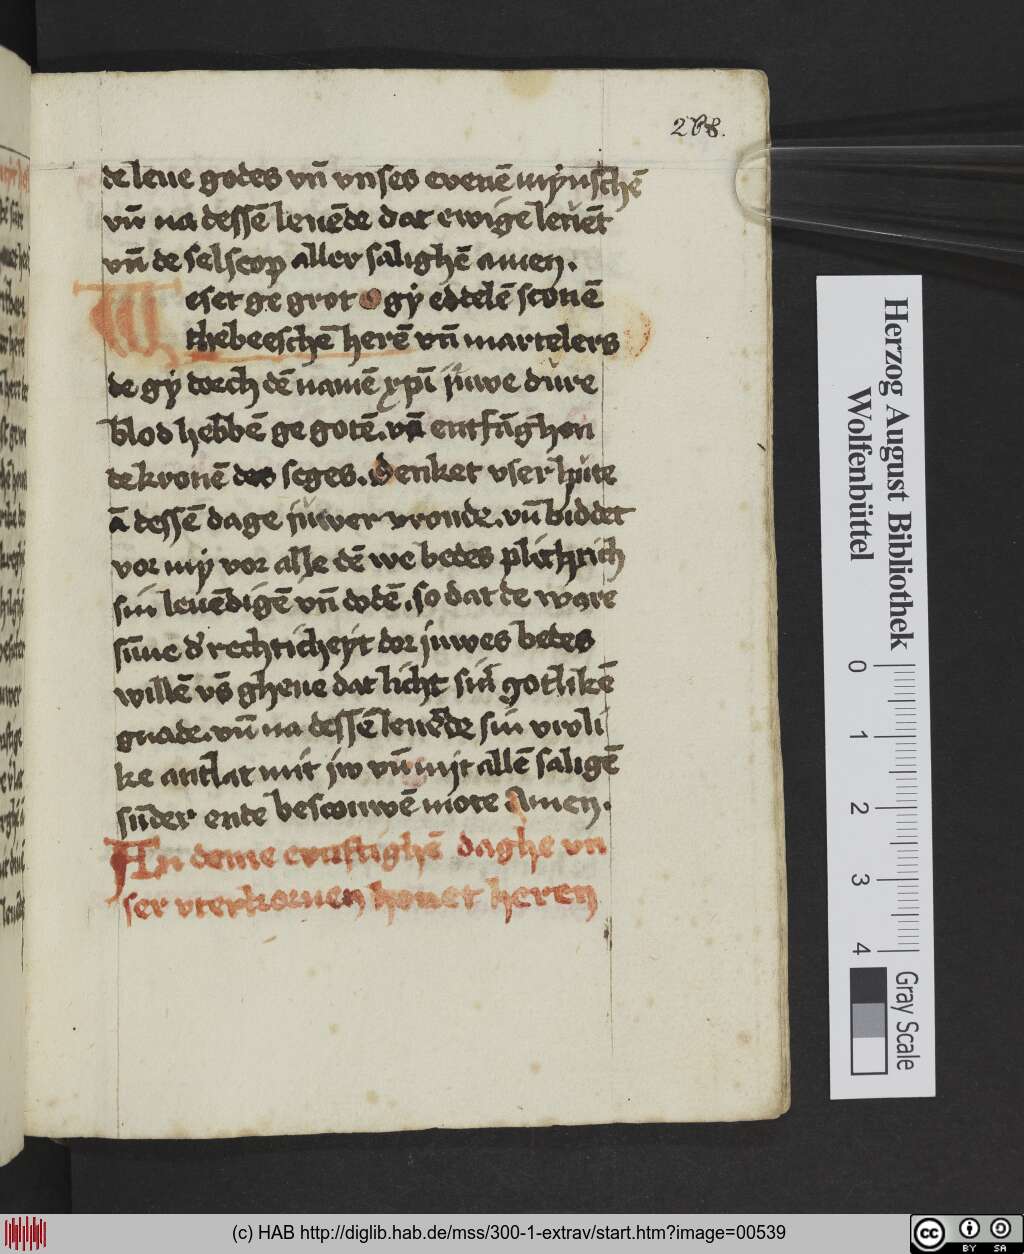 268.
de leue godes vn̄ vnses euenē mynschē
vn̄ na dessē leuēde dat ewige leuēt
vn̄ de selscop aller salighē amen.
Weset ge grot o gy eddelē sconē
thebeeschē herē vn̄ martelers
de gy doch dē namē xp̄i juwe dure
blod hebbē ge gotē. vn̄ entfāghen
de kronē des seges. Denket vser hute
ā dessē dage juwer vronde. vn̄ biddet
vor my vor alle dē we bedes plichtich
sin leuēdigē vn̄ dodē. so dat de ware
sūne d' rechticheyt dor juwes bedes
willē vs̄ gheue dat licht sin̄ gotlikē
gnade. vn̄ na dessē leuēde sin vroli
ke antlat mit jw vn̄ mit allē saligē
sūder ente bescouwē mote Amen.
An deme crastighē daghe vn
ser vterkornen houet heren
Herzog August Bibliothek
Wolfenbüttel
0 1 2 3 4
Gray Scale
(c) HAB http://diglib.hab.de/mss/300-1-extrav/start.htm?image=00539
cc BY SA